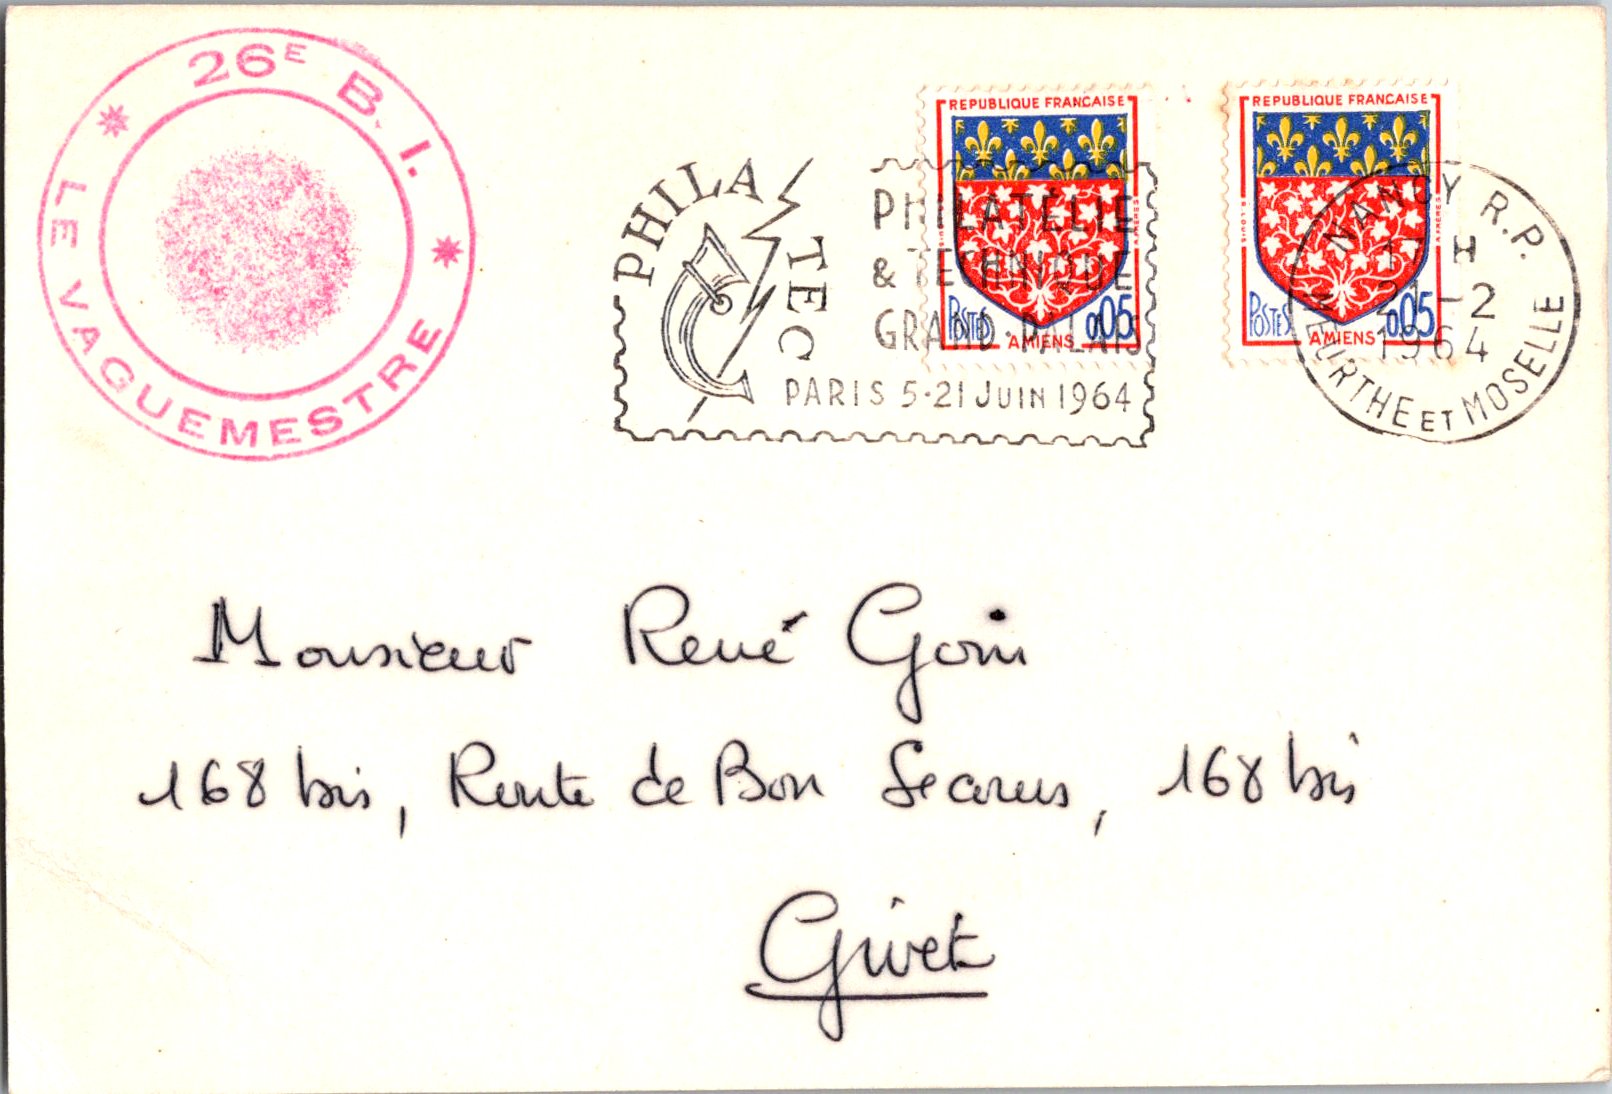 26E B. I.
LE VAGUEMESTRE
PHILATEC
PHILATÉLIE
& TECHNIQUE
GRAND-PALAIS
PARIS 5-21 JUIN 1964
REPUBLIQUE FRANCAISE
POSTES 0,05
AMIENS
REPUBLIQUE FRANCAISE
POSTES 0,05
AMIENS
NANCY R.P.
H
21-2
1964
MEURTHE ET MOSELLE
Monsieur René Goin
168 bis, Route de Bon Secours, 168 bis
Givet